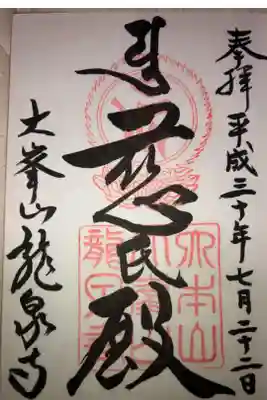 奉拝 平成三十年七月二十二日
慈氏殿
大峯山龍泉寺
大本山
龍泉寺